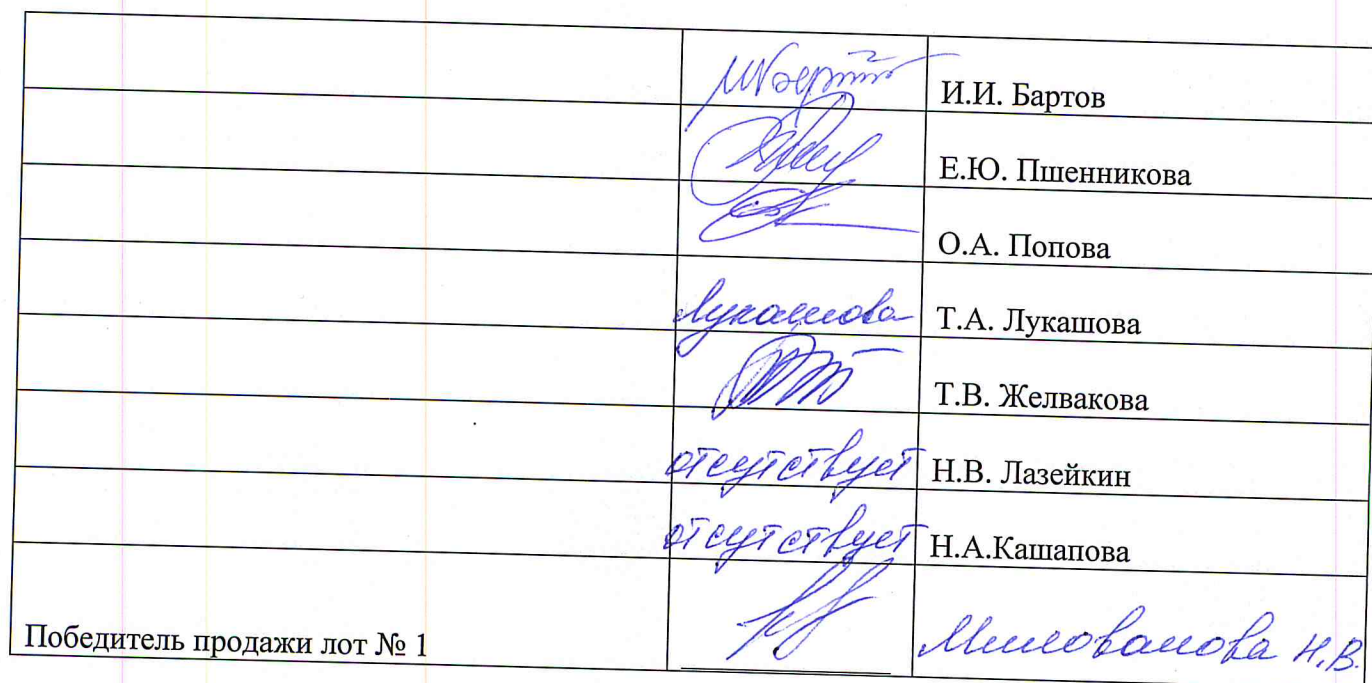 И.И. Бартов
Е.Ю. Пшенникова
О.А. Попова
Лукашова Т.А. Лукашова
Т.В. Желвакова
отсутствует Н.В. Лазейкин
отсутствует Н.А.Кашапова
Победитель продажи лот № 1 Милованова Н.В.